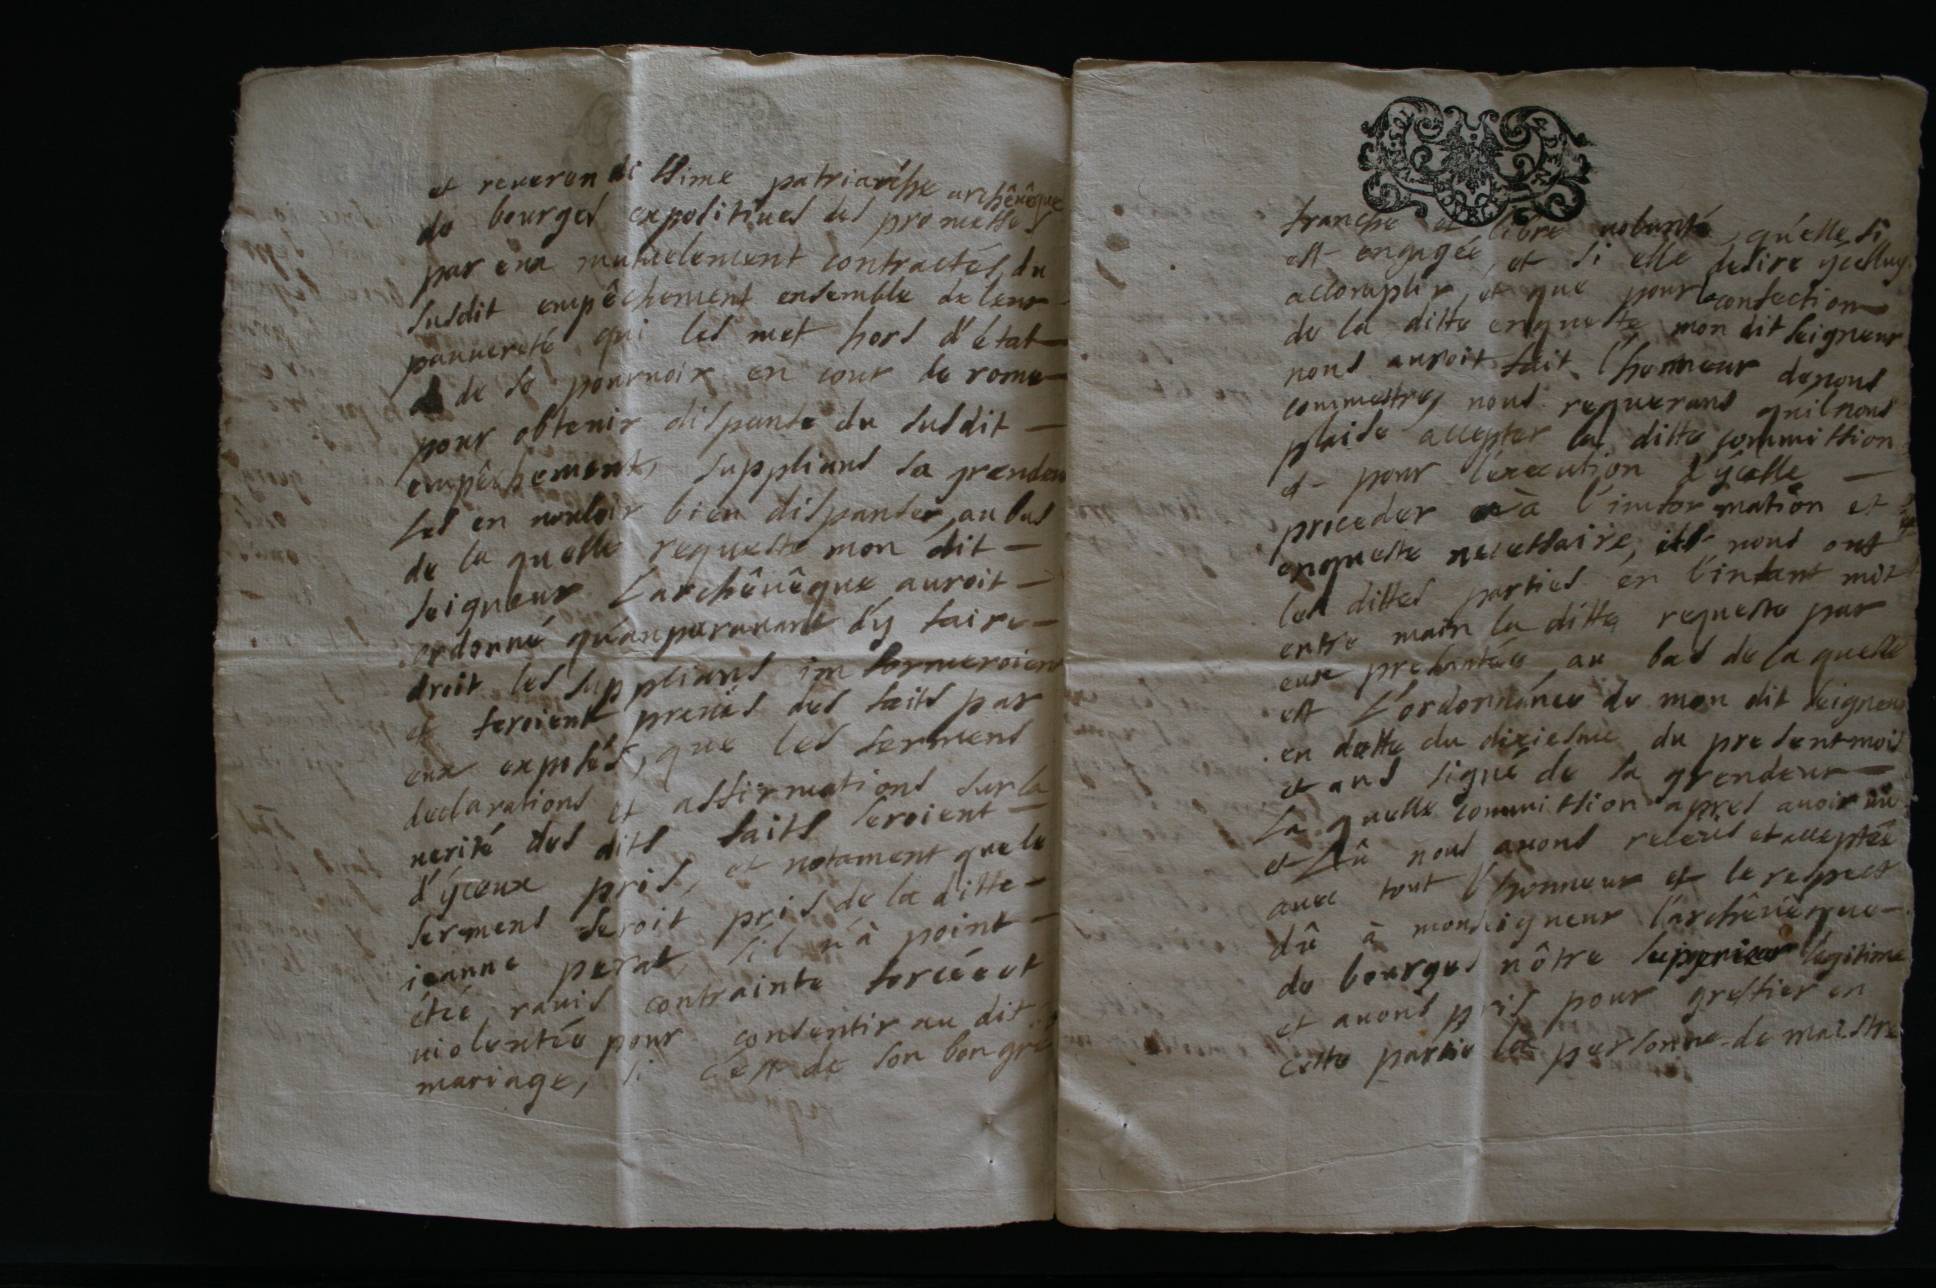 et reverendissime patriarche archêvêque
de bourges expositives des promesses
par eux mutuelement contractés, du
susdit empêchement ensemble de leur
pauvereté, qui les met hors d'état
de se pourvoir en cour de rome
pour obtenir dispanse du susdit
empêchement, supplians sa grendeur
les en vouloir bien dispanser, au bas
de la quelle requeste mon dit
seigneur L'archêvêque auroit
ordonné qu'auparavant d'y faire
droit les supplians imformeroient
et feroient preuves des faits par
eux exposés, que les sermens
declarations et affirmations sur la
verité des dits faits seroient
d'yceux pris, et notament que le
serment seroit pris de la ditte
jeanne perat, s'il n'à point
étée ravis contrainte forcée et
violentée pour consentir au dit
mariage, si c'est de son bon gré
requeste
franche et libre volonté, qu'elle si
est engagée, et si elle desire ycelluy
accomplir, et que pour la confection
de la ditte enqueste mon dit seigneur
nous auroit fait l'honneur de nous
commestre, nous requerans qu'il nous
plaise accepter la ditte commission
et pour l'execution d'ycelle
proceder à l'imformation et
enqueste necessaire, nous ont
les dittes parties en l'instant mit
entre main la ditte requeste par
eux presantée au bas de la quelle
est L'ordonnance de mon dit seigneur
en datte du dixiesme du present mois
et ans signé de sa grendeur
La quelle commission apres avoir vû
et Lû nous avons receüs et acceptée
avec tout l'honneur et le respect
dû à monseigneur l'archêvêque
de bourges nôtre supperieur legitime
et avons pris pour greffier en
cette partie la personne de maistre